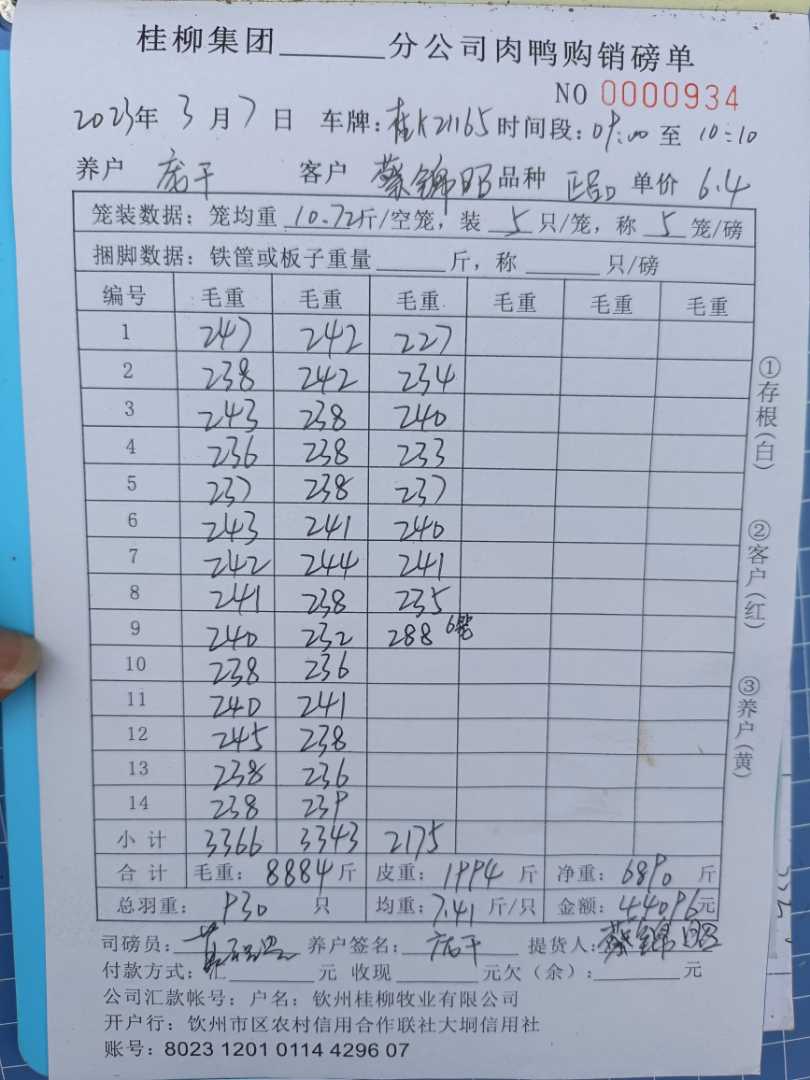 桂柳集团______分公司肉鸭购销磅单
NO 0000934
2023年 3 月 7 日 车牌:桂K21165 时间段:09:00 至 10:10
养户 庞干 客户 蔡锦昭 品种 正品 单价 6.4
笼装数据:笼均重 10.72斤/空笼,装 5 只/笼,称 5 笼/磅
捆脚数据:铁筐或板子重量______斤,称______只/磅
编号 毛重 毛重 毛重 毛重 毛重 毛重
1 247 242 227
2 238 242 234
3 243 238 240
4 236 238 233
5 237 238 237
6 243 241 240
7 242 244 241
8 241 238 235
9 240 232 288 6笼
10 238 236
11 240 241
12 245 238
13 238 236
14 238 239
小计 3366 3343 2175
合计 毛重:8884斤 皮重:1994斤 净重:6890斤
总羽重:930只 均重:7.41斤/只 金额:44096元
司磅员: 养户签名:庞干 提货人:蔡锦昭
付款方式:汇______元 收现______元欠(余):______元
公司汇款帐号:户名:钦州桂柳牧业有限公司
开户行:钦州市区农村信用合作联社大垌信用社
账号:8023 1201 0114 4296 07
①存根(白)
②客户(红)
③养户(黄)